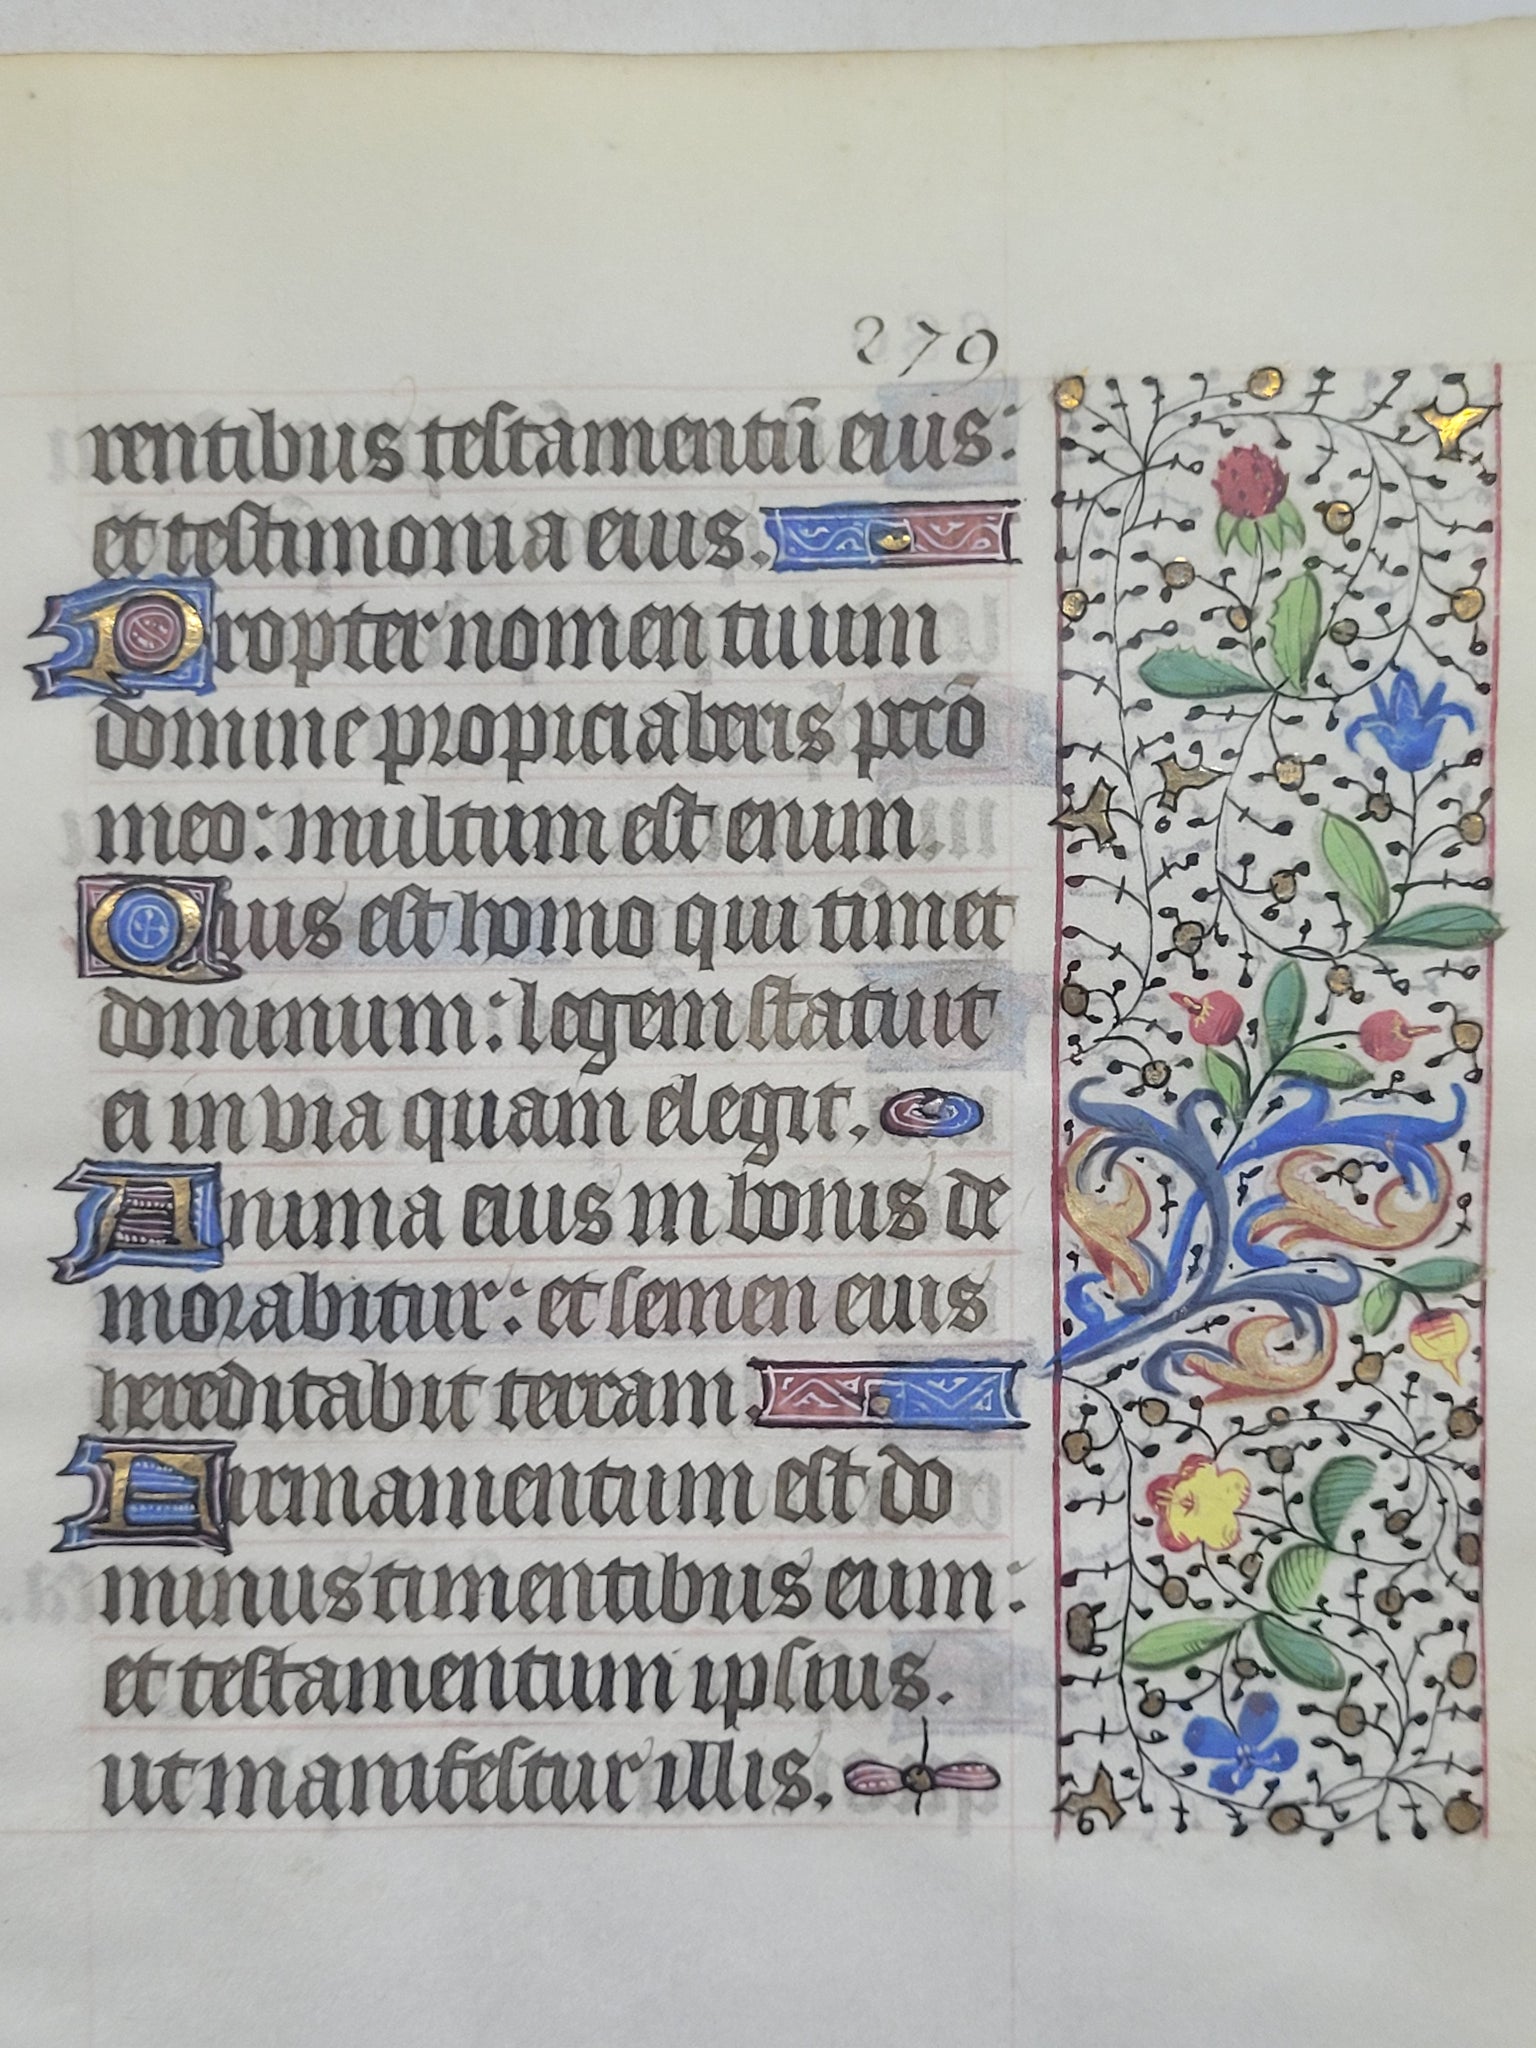 279
rentibus testamentū eius:
et testimonia eius.
Propter nomen tuum
domine propiciaberis pctō
meo: multum est enim.
Quis est homo qui timet
dominum: legem statuit
ei in via quam elegit.
Anima eius in bonis de
morabitur: et semen eius
hereditabit terram.
Firmamentum est do
minus timentibus eum:
et testamentum ipsius.
ut manifestur illis.